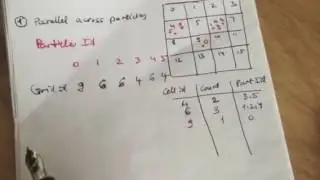 Parallel across particles
0 1 2 3
Particle Id
0 1 2 3 4 5
Grid id 9 6 6 4 6 4
12 13 14 15
Cell id Count Part Id
4 2 3,5
6 3 1,2,4
9 1 0